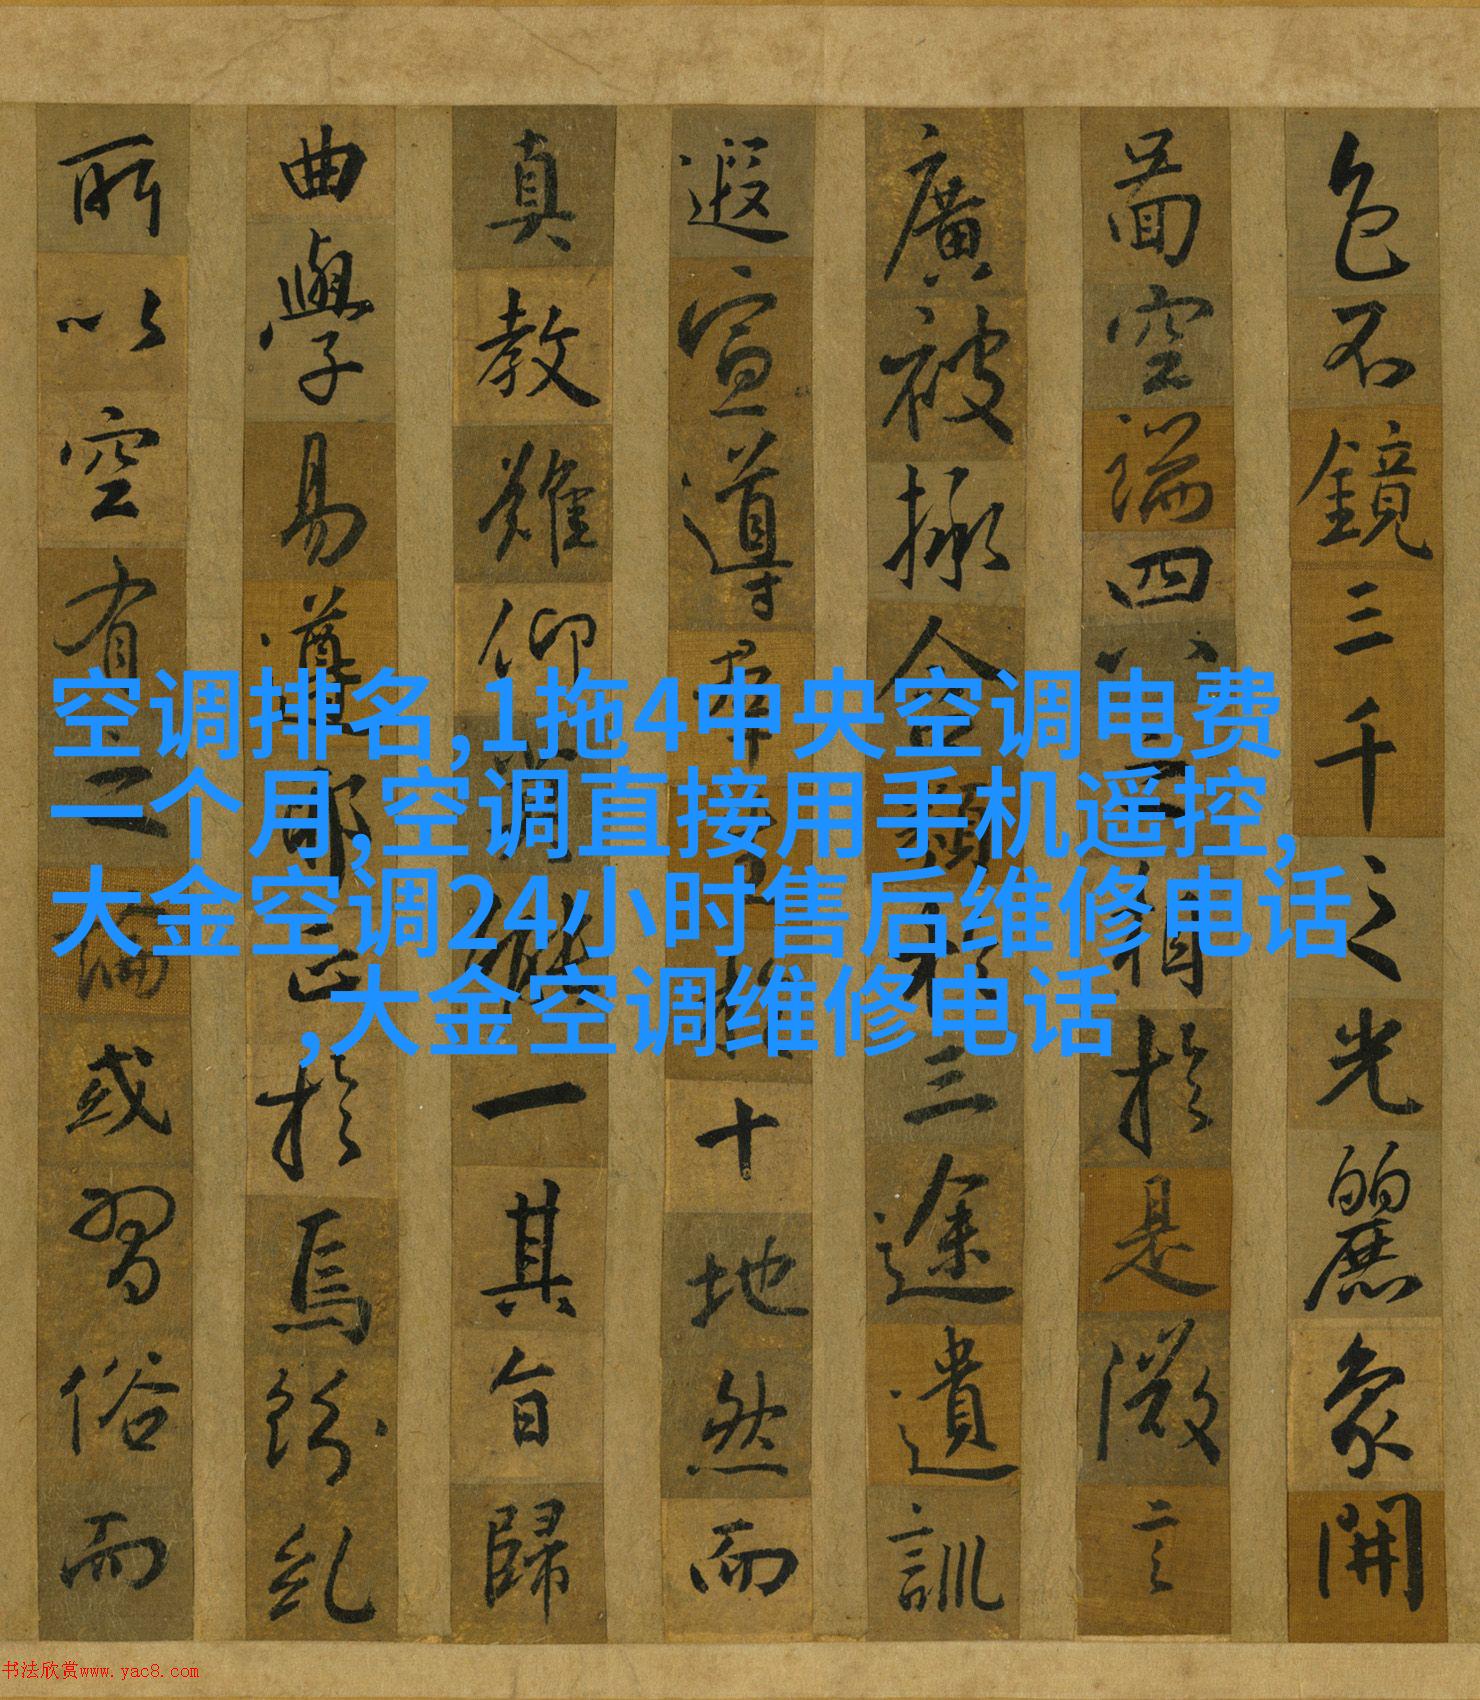 色不鏡三千之光麗象開
啚空端四八之相於是微言
廣被拯含類於三途遺訓
遐宣導羣生於十地然而
真教難仰莫能一其旨歸
曲學易遵耶正於焉紛糺
所以空有之論或習俗而
空调排名,1拖4中央空调电费
一个月,空调直接用手机遥控,
大金空调24小时售后维修电话
,大金空调维修电话
书法欣赏www.yac8.com